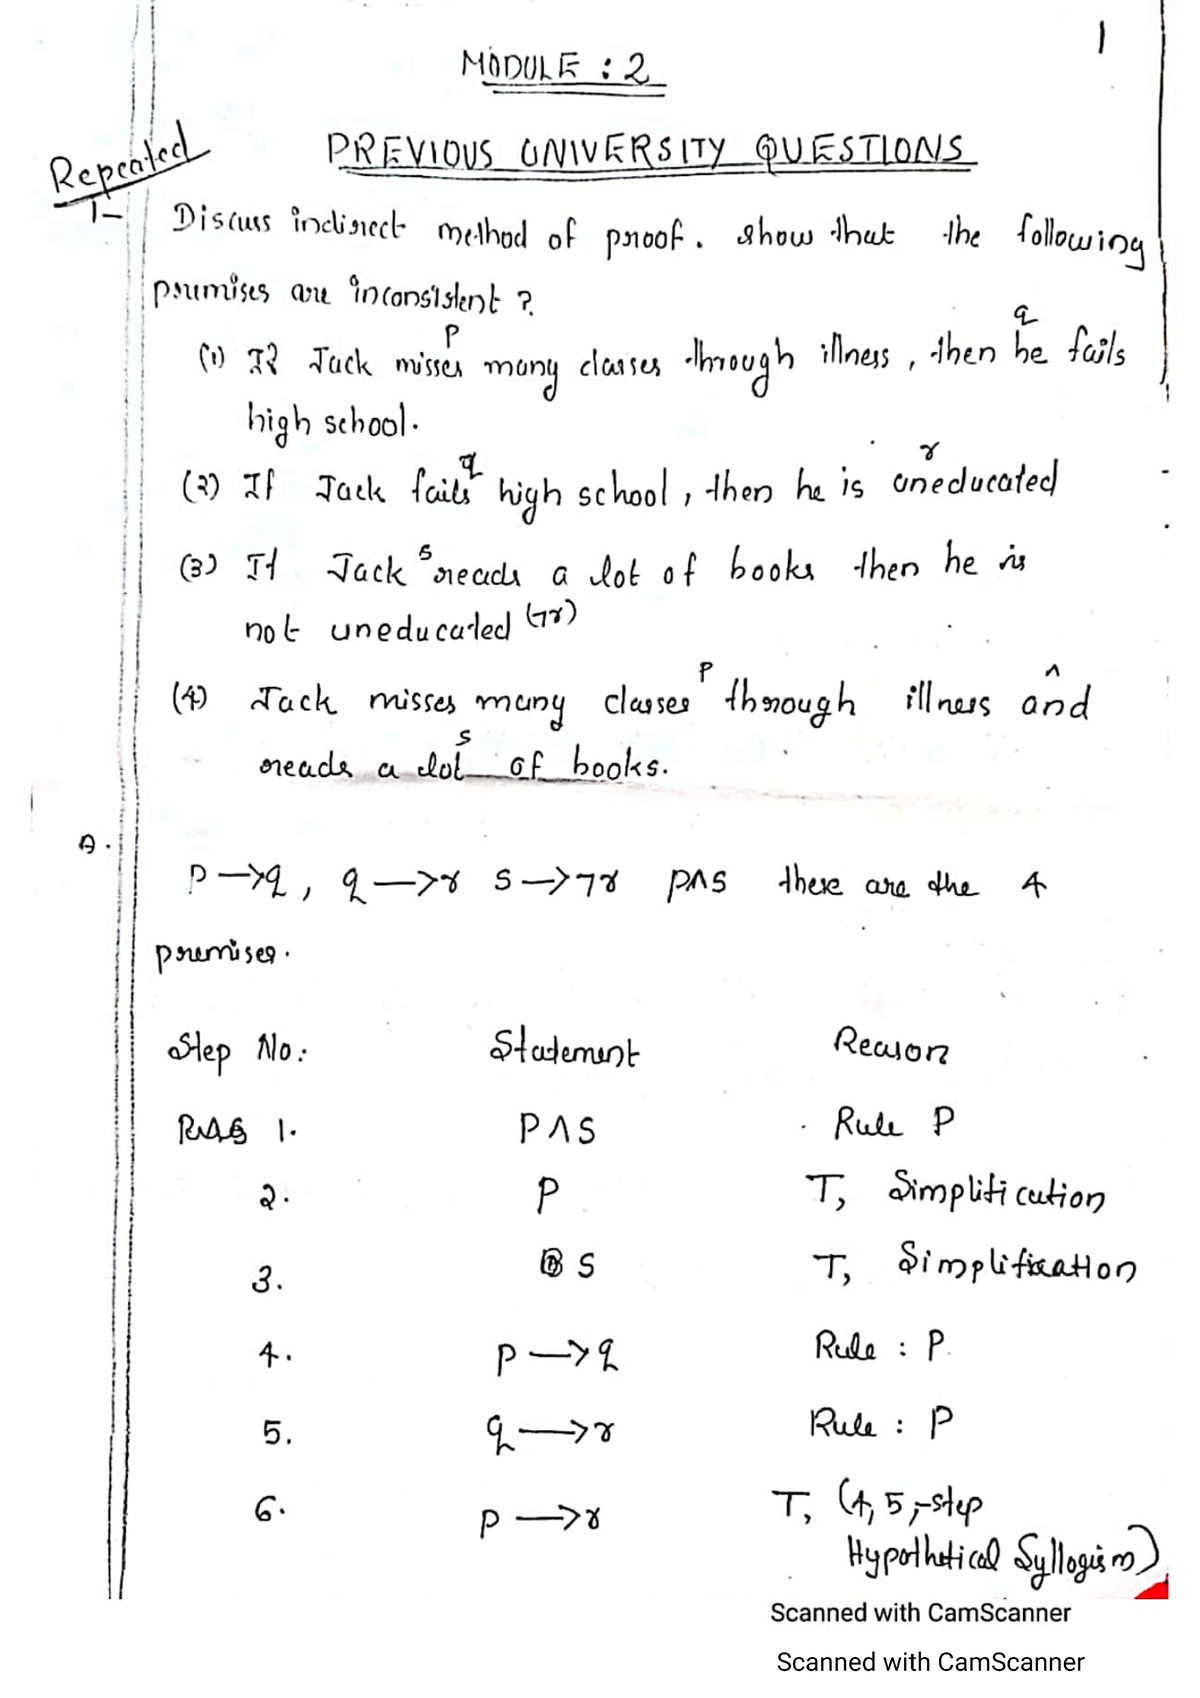 1
MODULE : 2
Repeated
PREVIOUS UNIVERSITY QUESTIONS
1- Discuss indirect method of proof. Show that the following
premises are inconsistent ?
p q
(1) If Jack misses many classes through illness, then he fails
high school.
q r
(2) If Jack fails high school, then he is uneducated
s
(3) If Jack reads a lot of books then he is
not uneducated (¬r)
p ∧
(4) Jack misses many classes through illness and
s
reads a lot of books.
A.
P → q, q → r s → ¬r p∧s these are the 4
premises.
Step No: Statement Reason
1. P ∧ S Rule P
2. P T, Simplification
3. S T, Simplification
4. p → q Rule : P.
5. q → r Rule : P
6. p → r T, (4, 5,-step
Hypothetical Syllogism)
Scanned with CamScanner
Scanned with CamScanner